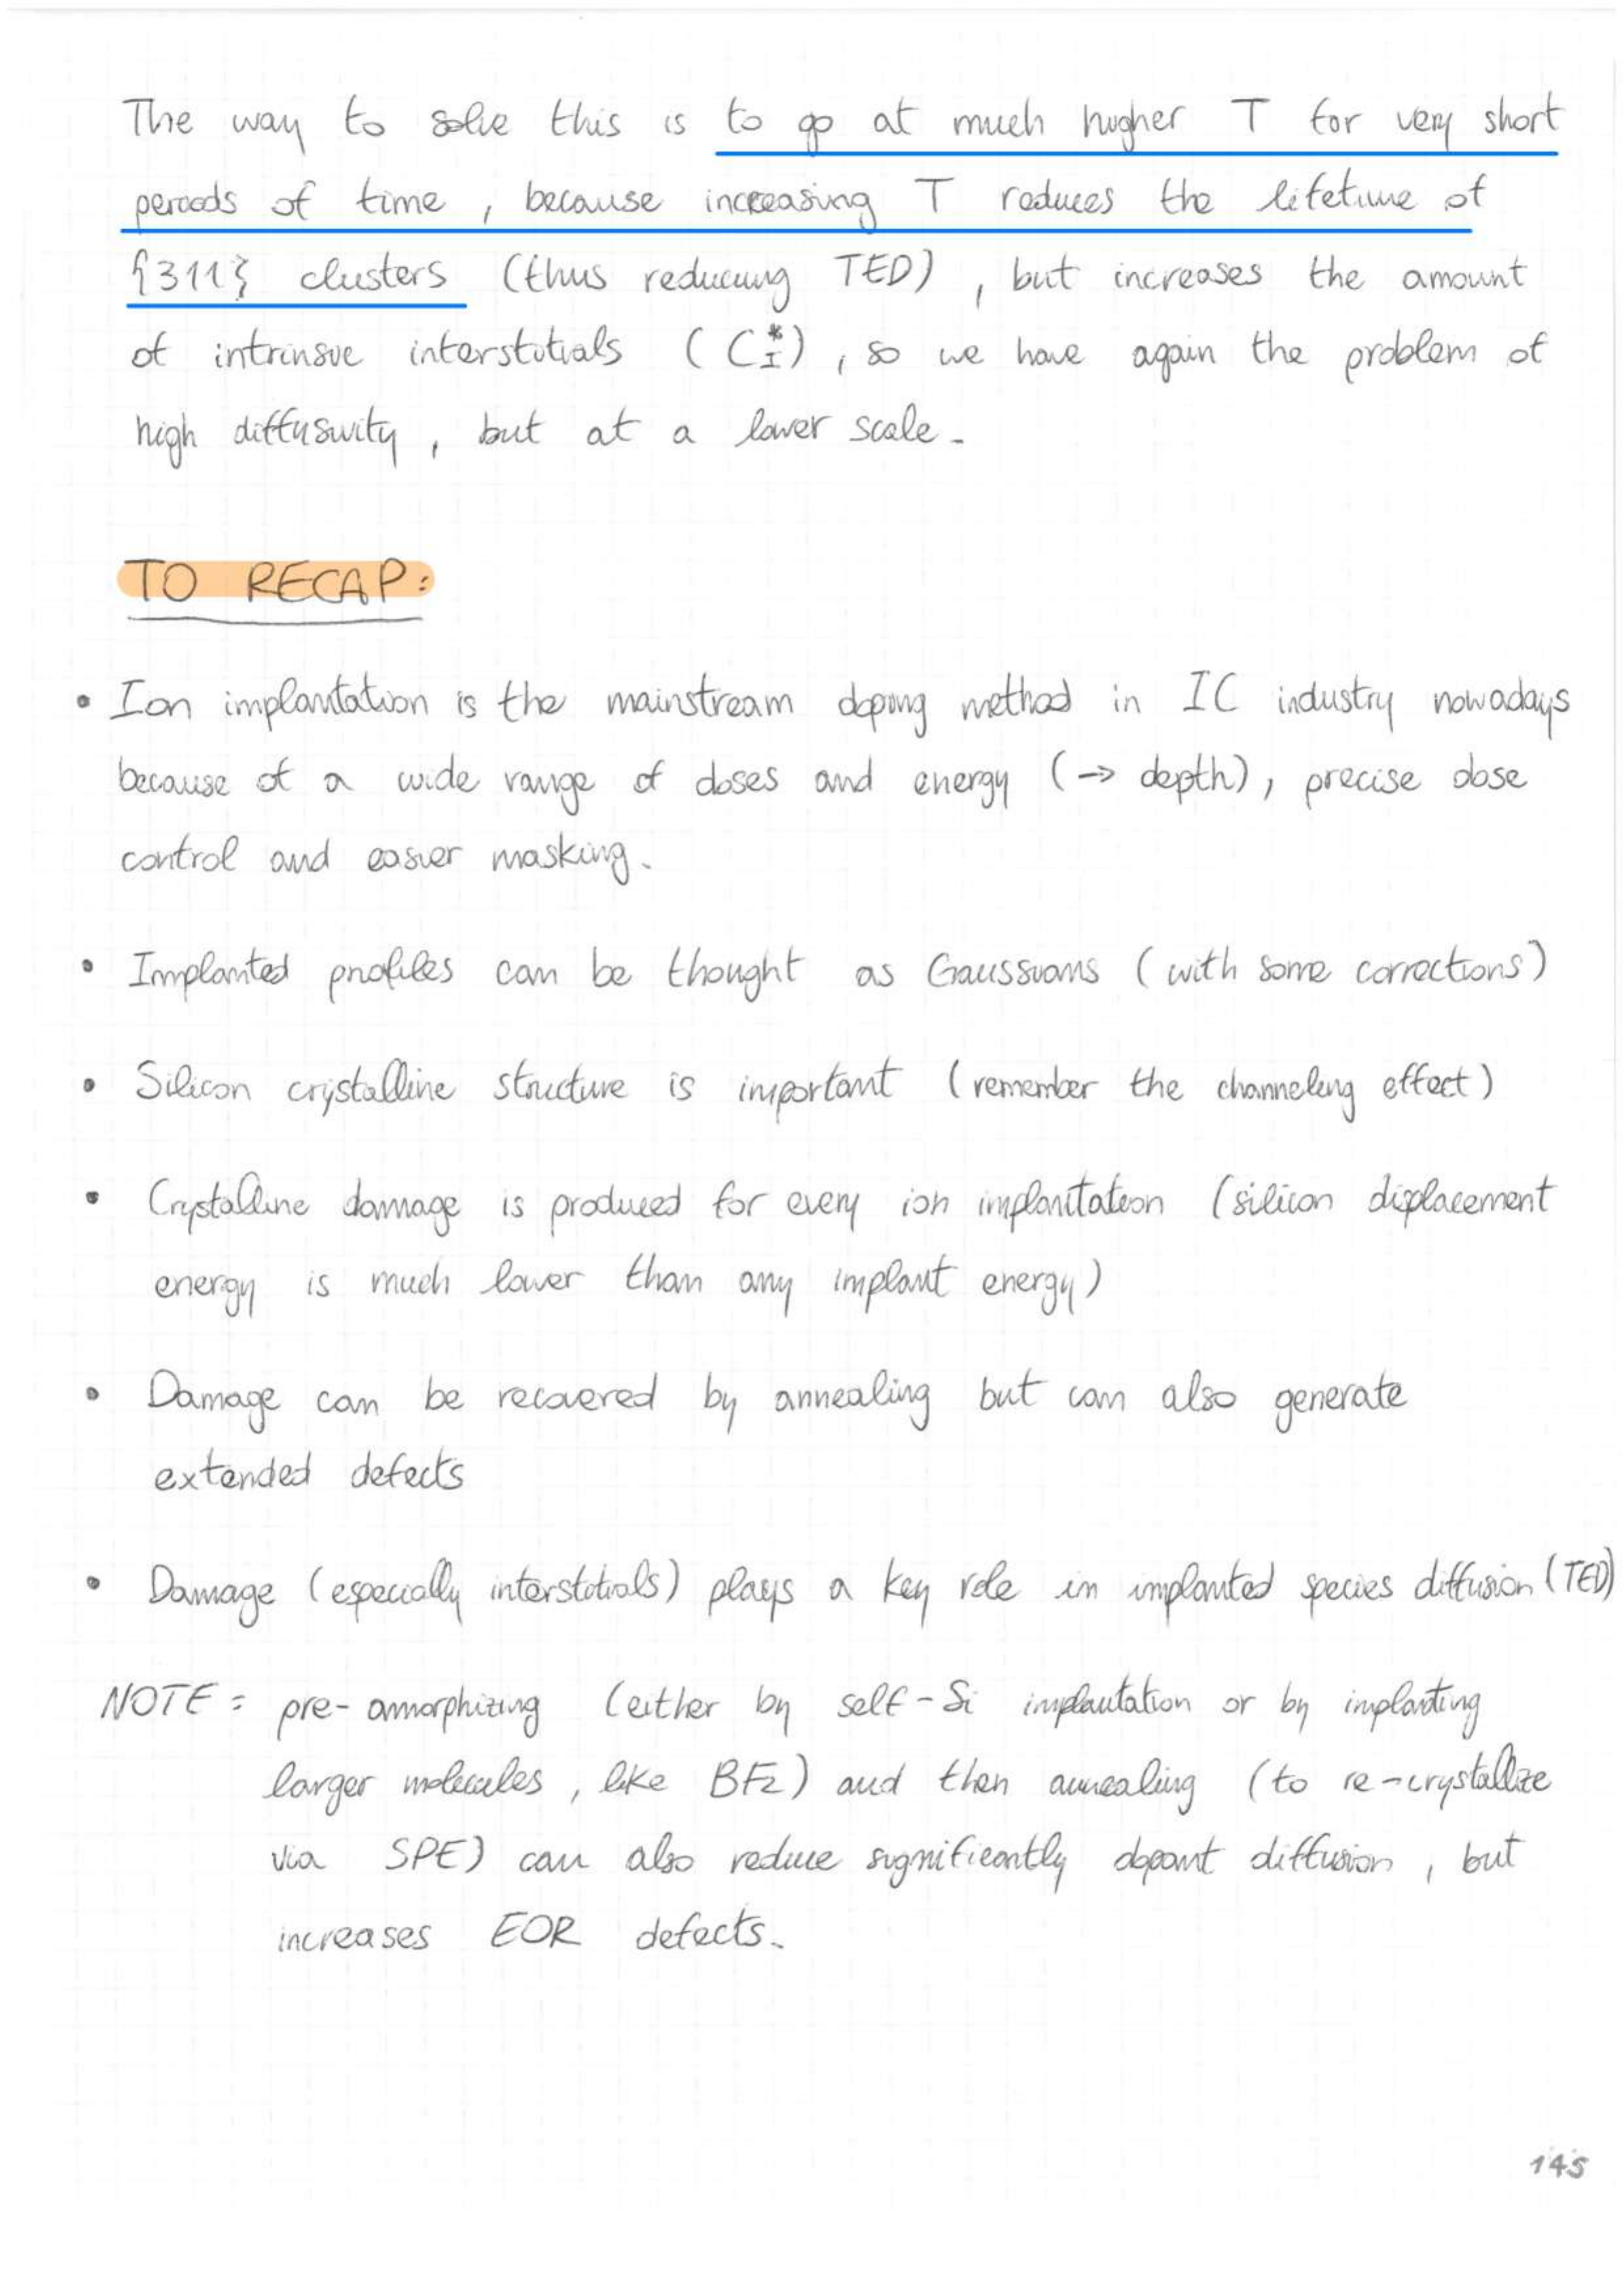 The way to solve this is to go at much higher T for very short
periods of time, because increasing T reduces the lifetime of
{311} clusters (thus reducing TED), but increases the amount
of intrinsic interstitials (C_I^*), so we have again the problem of
high diffusivity, but at a lower scale.
TO RECAP:
• Ion implantation is the mainstream doping method in IC industry nowadays
because of a wide range of doses and energy (→ depth), precise dose
control and easier masking.
• Implanted profiles can be thought as Gaussians (with some corrections)
• Silicon crystalline structure is important (remember the channeling effect)
• Crystalline damage is produced for every ion implantation (silicon displacement
energy is much lower than any implant energy)
• Damage can be recovered by annealing but can also generate
extended defects
• Damage (especially interstitials) plays a key role in implanted species diffusion (TED)
NOTE: pre-amorphizing (either by self-Si implantation or by implanting
larger molecules, like BF2) and then annealing (to re-crystallize
via SPE) can also reduce significantly dopant diffusion, but
increases EOR defects.
145